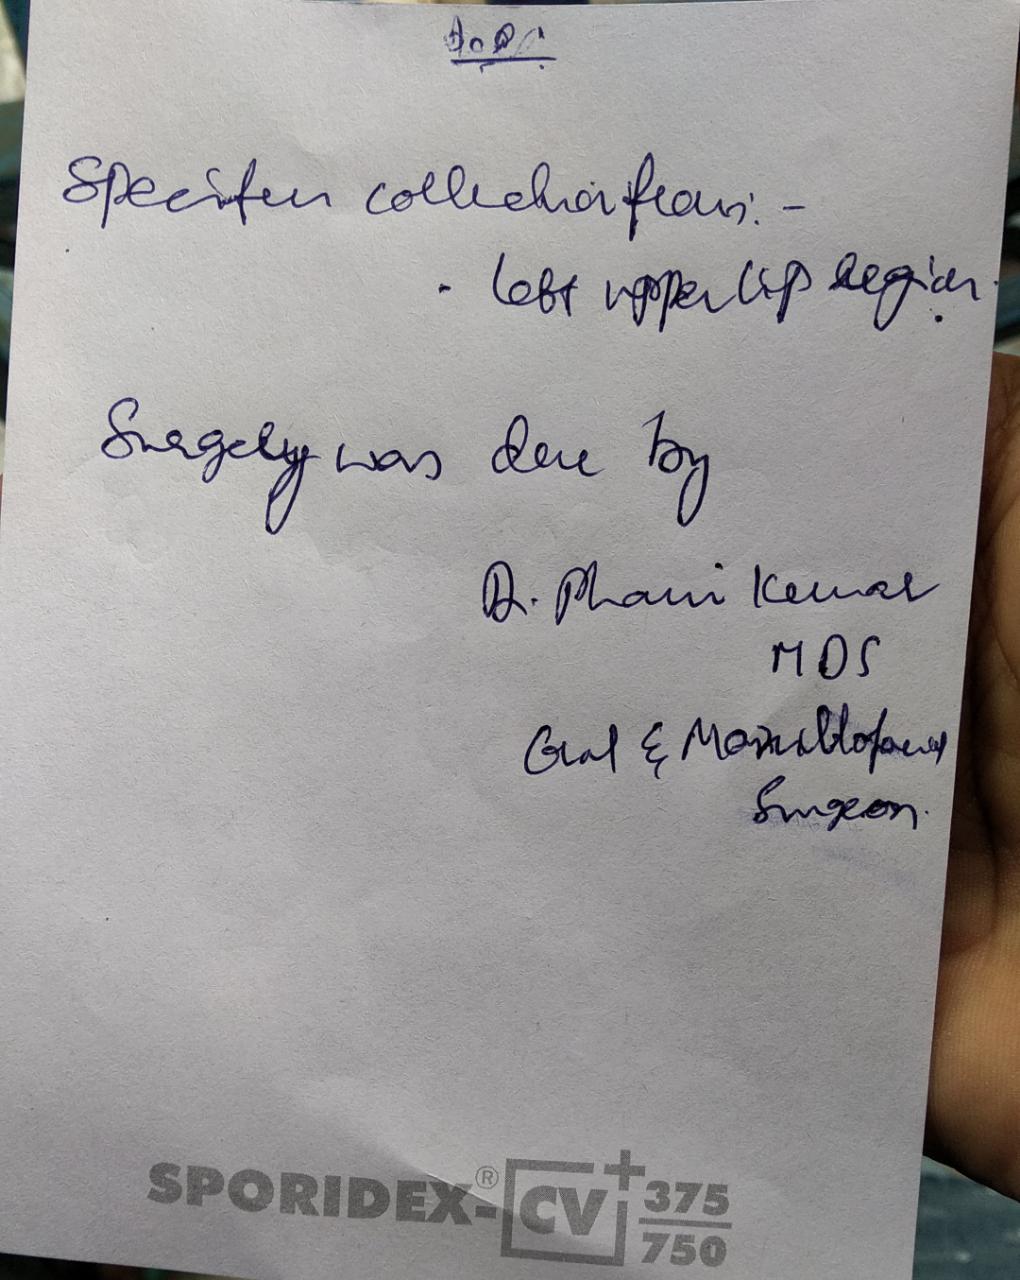 Specifen collection from: -
. left upper lip Region.
Surgery was done by
Dr. Phani Kumar
MDS
Oral & Maxillofacial
Surgeon.
SPORIDEX®-CV+ 375
750